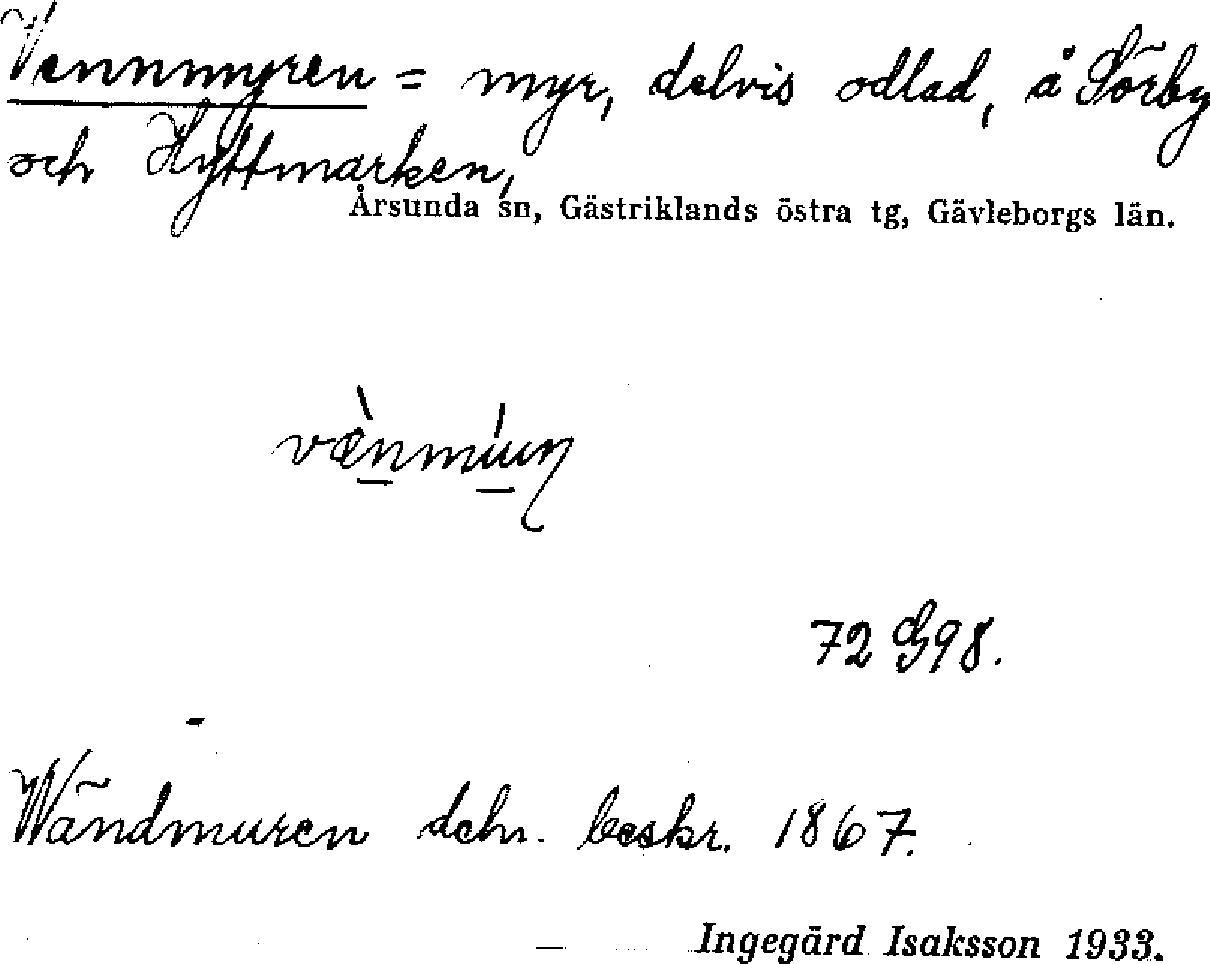 Vennmyren = myr, delvis odlad, å Sörby
och Hyttmarken,
Årsunda sn, Gästriklands östra tg, Gävleborgs län.
72 G98.
Wändmuren dchn. beskr. 1867.
Ingegärd Isaksson 1933.